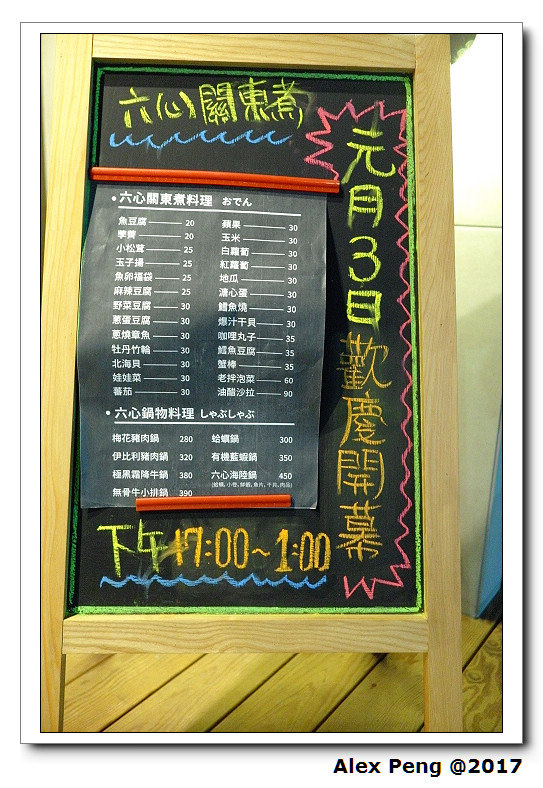 六心關東煮
元月3日歡慶開幕
•六心關東煮料理 おでん
魚豆腐 20
蘋果 30
荸薺 20
玉米 30
小松茸 25
白蘿蔔 30
玉子揚 25
紅蘿蔔 30
魚卵福袋 25
地瓜 30
麻辣豆腐 25
溏心蛋 30
野菜豆腐 30
鱈魚燒 30
蔥蛋豆腐 30
爆汁干貝 30
蔥燒章魚 30
咖哩丸子 35
牡丹竹輪 30
鱈魚豆腐 35
北海貝 30
蟹棒 35
娃娃菜 30
老拌泡菜 60
蕃茄 30
油醋沙拉 90
•六心鍋物料理 しゃぶしゃぶ
梅花豬肉鍋 280
蛤蠣鍋 300
伊比利豬肉鍋 320
有機藍蝦鍋 350
極黑霜降牛鍋 380
六心海陸鍋 450
無骨牛小排鍋 390
下午 17:00~1:00
Alex Peng @2017